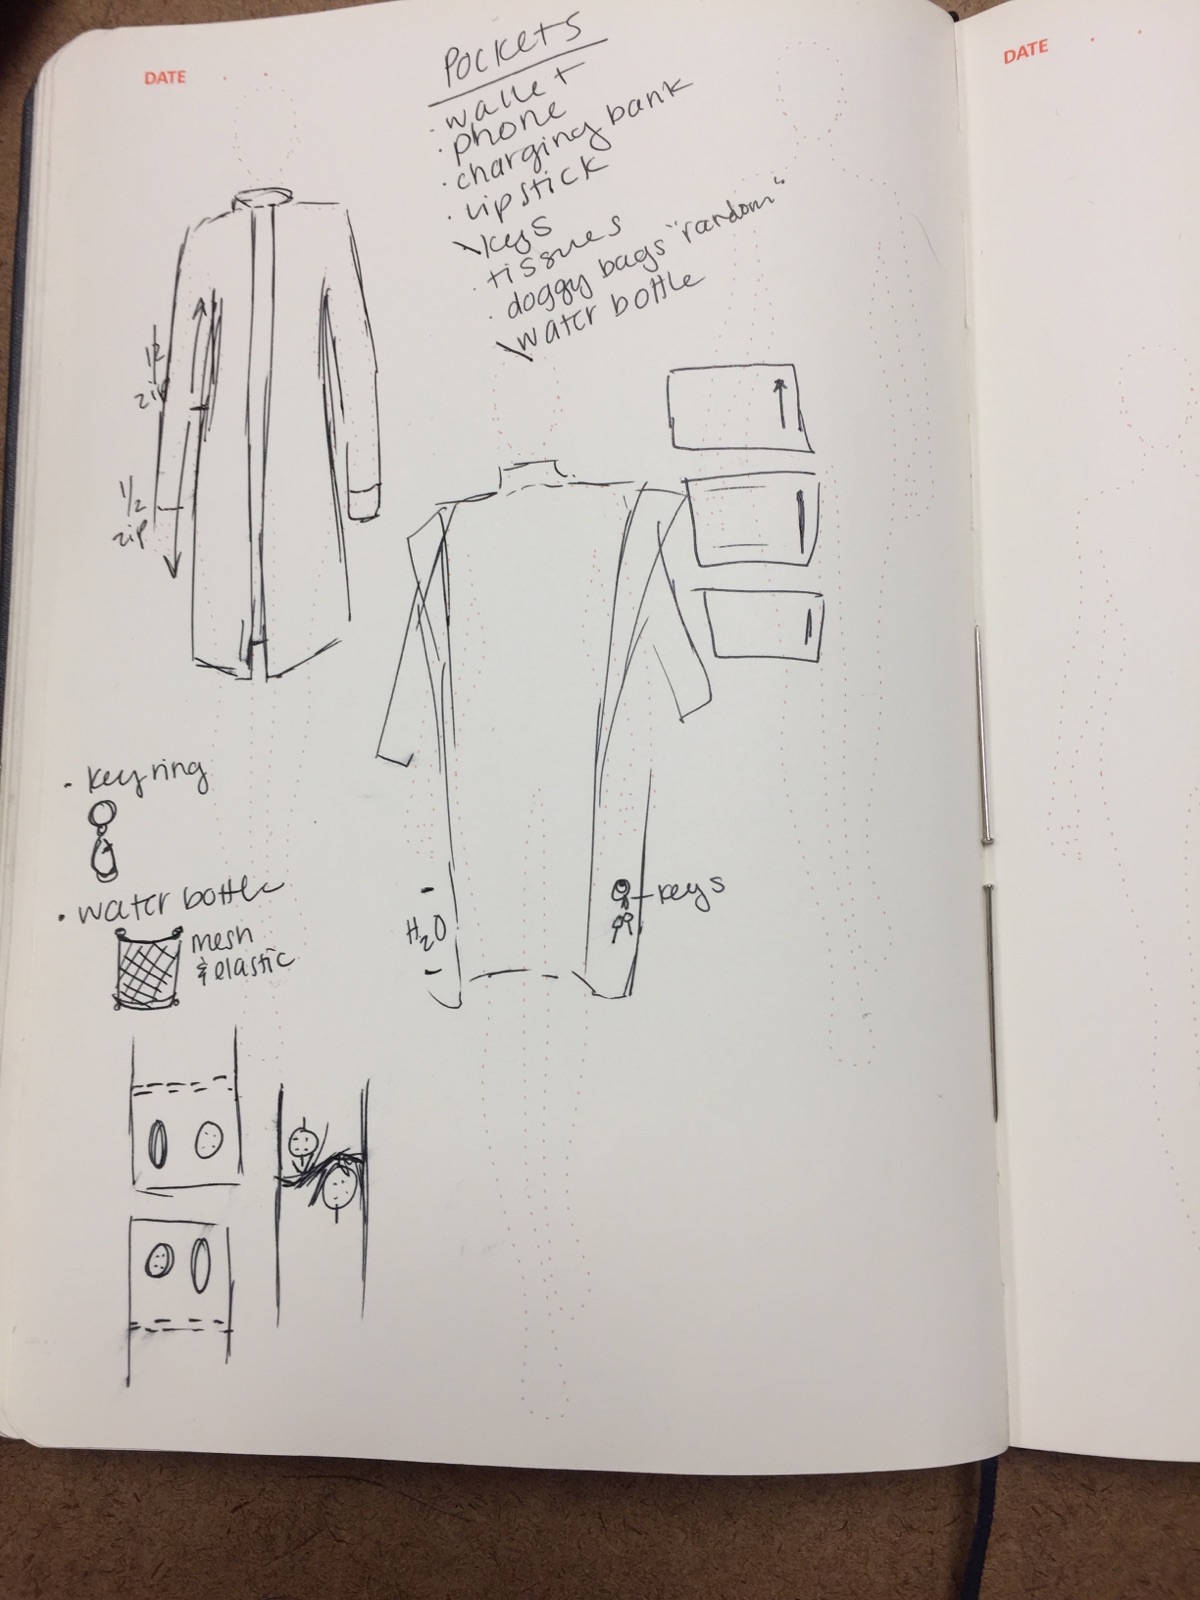 DATE
DATE
Pockets
· wallet
· phone
· charging bank
· lipstick
keys
· tissues
· doggy bags "random"
water bottle
1/2
zip
1/2
zip
· key ring
· water bottle
mesh
& elastic
H2O
keys